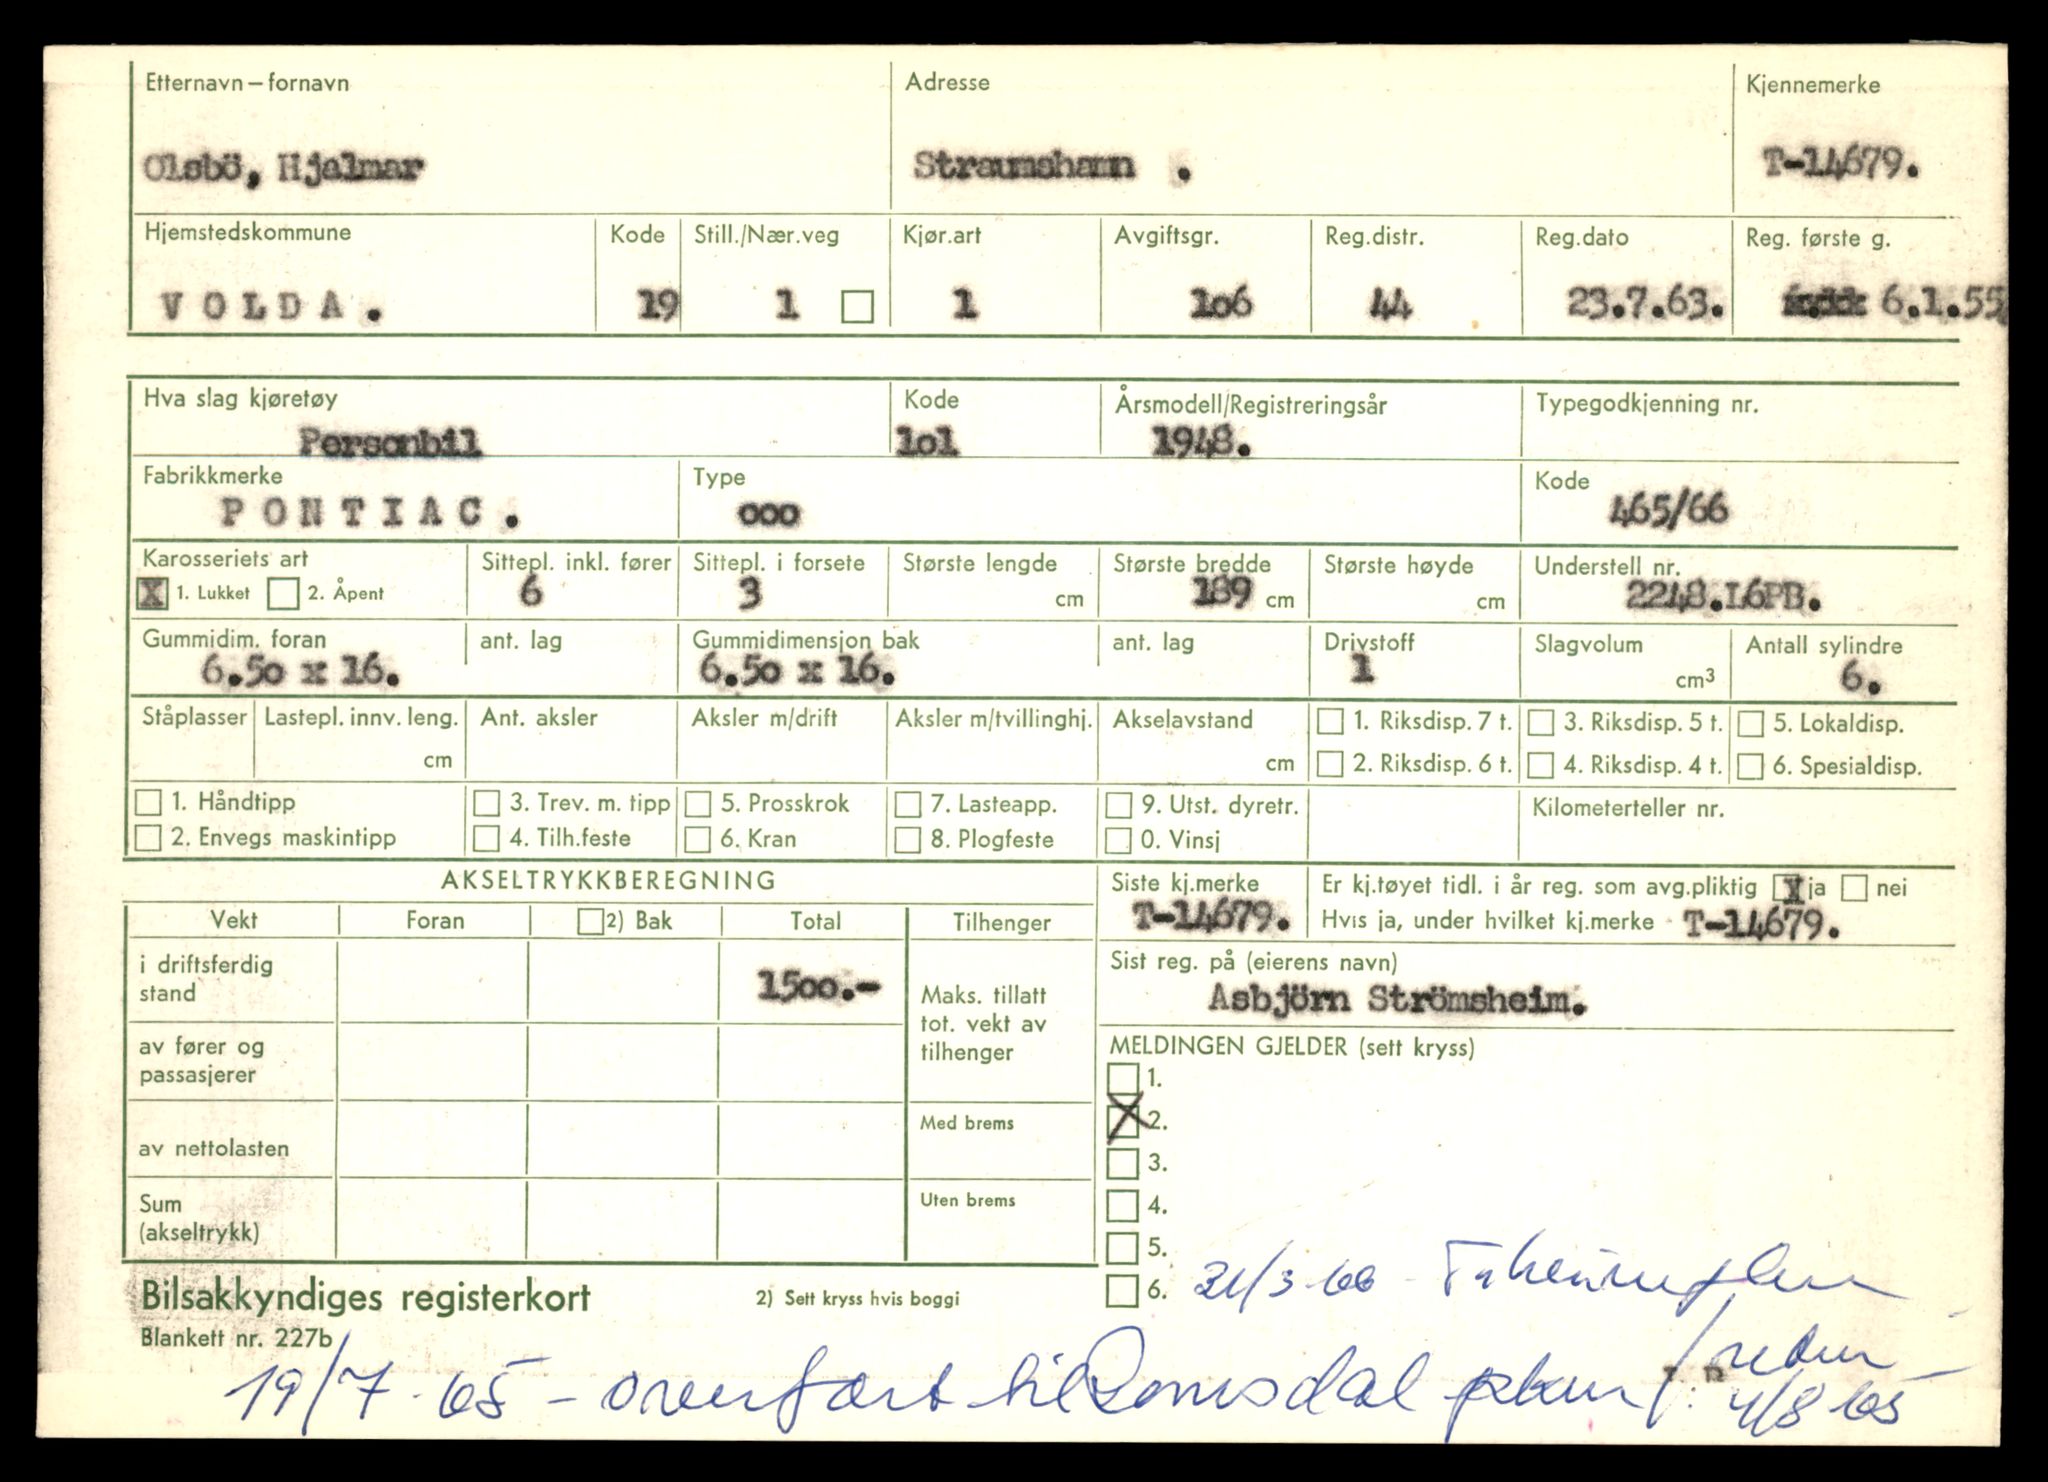 Etternavn – fornavn Adresse Kjennemerke
Olsbö, Hjalmar Straumshamn . T-14679.
Hjemstedskommune Kode Still./Nær.veg Kjør.art Avgiftsgr. Reg.distr. Reg.dato Reg. første g.
VOLDA. 19 1 1 1o6 44 23.7.63. 6.1.55
Hva slag kjøretøy Kode Årsmodell/Registreringsår Typegodkjenning nr.
Personbil 1o1 1948.
Fabrikkmerke Type Kode
PONTIAC. ooo 465/66
Karosseriets art Sittepl. inkl. fører Sittepl. i forsete Største lengde Største bredde Største høyde Understell nr.
X 1. Lukket 2. Åpent 6 3 cm 189 cm cm 2248.L6PB.
Gummidim. foran ant. lag Gummidimensjon bak ant. lag Drivstoff Slagvolum Antall sylindre
6.5o x 16. 6.5o x 16. 1 cm3 6.
Ståplasser Lastepl. innv. leng. Ant. aksler Aksler m/drift Aksler m/tvillinghj. Akselavstand 1. Riksdisp. 7 t. 3. Riksdisp. 5 t. 5. Lokaldisp.
cm cm 2. Riksdisp. 6 t. 4. Riksdisp. 4 t. 6. Spesialdisp.
1. Håndtipp 3. Trev. m. tipp 5. Prosskrok 7. Lasteapp. 9. Utst. dyretr. Kilometerteller nr.
2. Envegs maskintipp 4. Tilh.feste 6. Kran 8. Plogfeste 0. Vinsj
AKSELTRYKKBEREGNING Siste kj.merke Er kj.tøyet tidl. i år reg. som avg.pliktig X ja nei
T-14679. Hvis ja, under hvilket kj.merke T-14679.
Vekt Foran 2) Bak Total Tilhenger
i driftsferdig stand 15oo.- Maks. tillatt tot. vekt av tilhenger
Sist reg. på (eierens navn)
Asbjörn Strömsheim.
av fører og passasjerer
MELDINGEN GJELDER (sett kryss)
1.
X 2.
av nettolasten Med brems
3.
Sum (akseltrykk) Uten brems
4.
5.
6. 31/3-66 -
Bilsakkyndiges registerkort 2) Sett kryss hvis boggi
Blankett nr. 227b
19/7-65 - overført til Romsdal
4/8 65